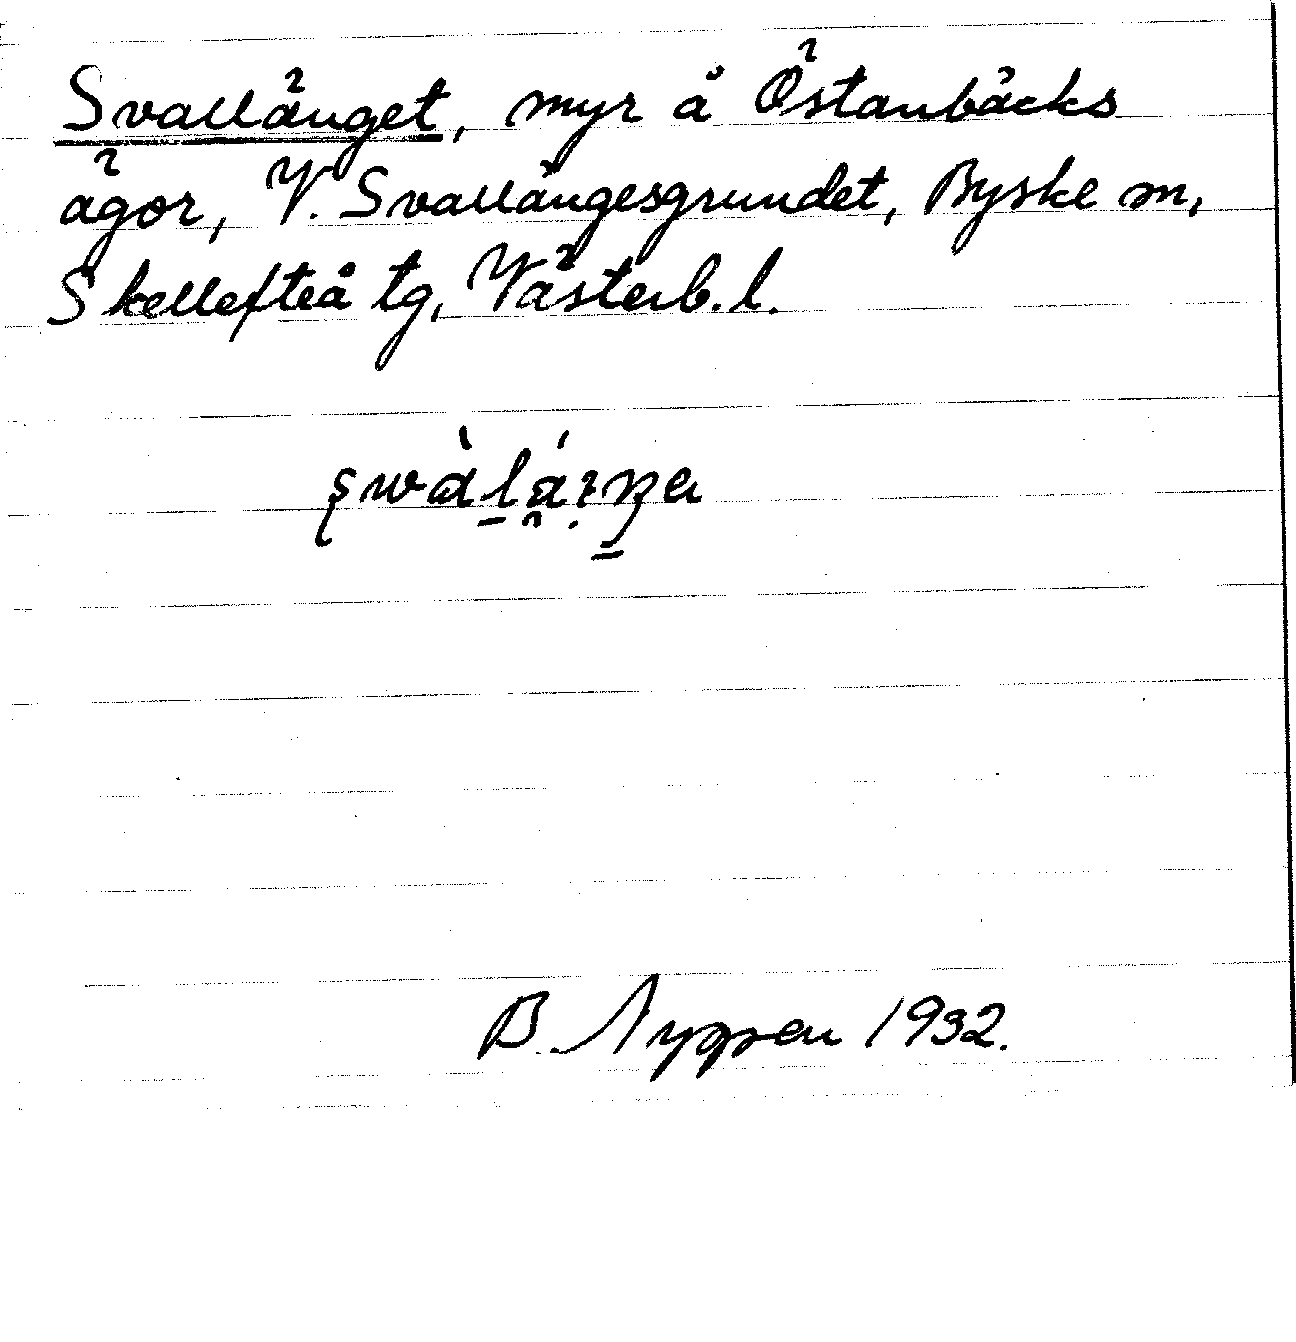 Svallänget, myr å Östanbäcks
ägor, V. Svallängesgrundet, Byske sn,
Skellefteå tg, Västerb. l.
B. Nyppen 1932.